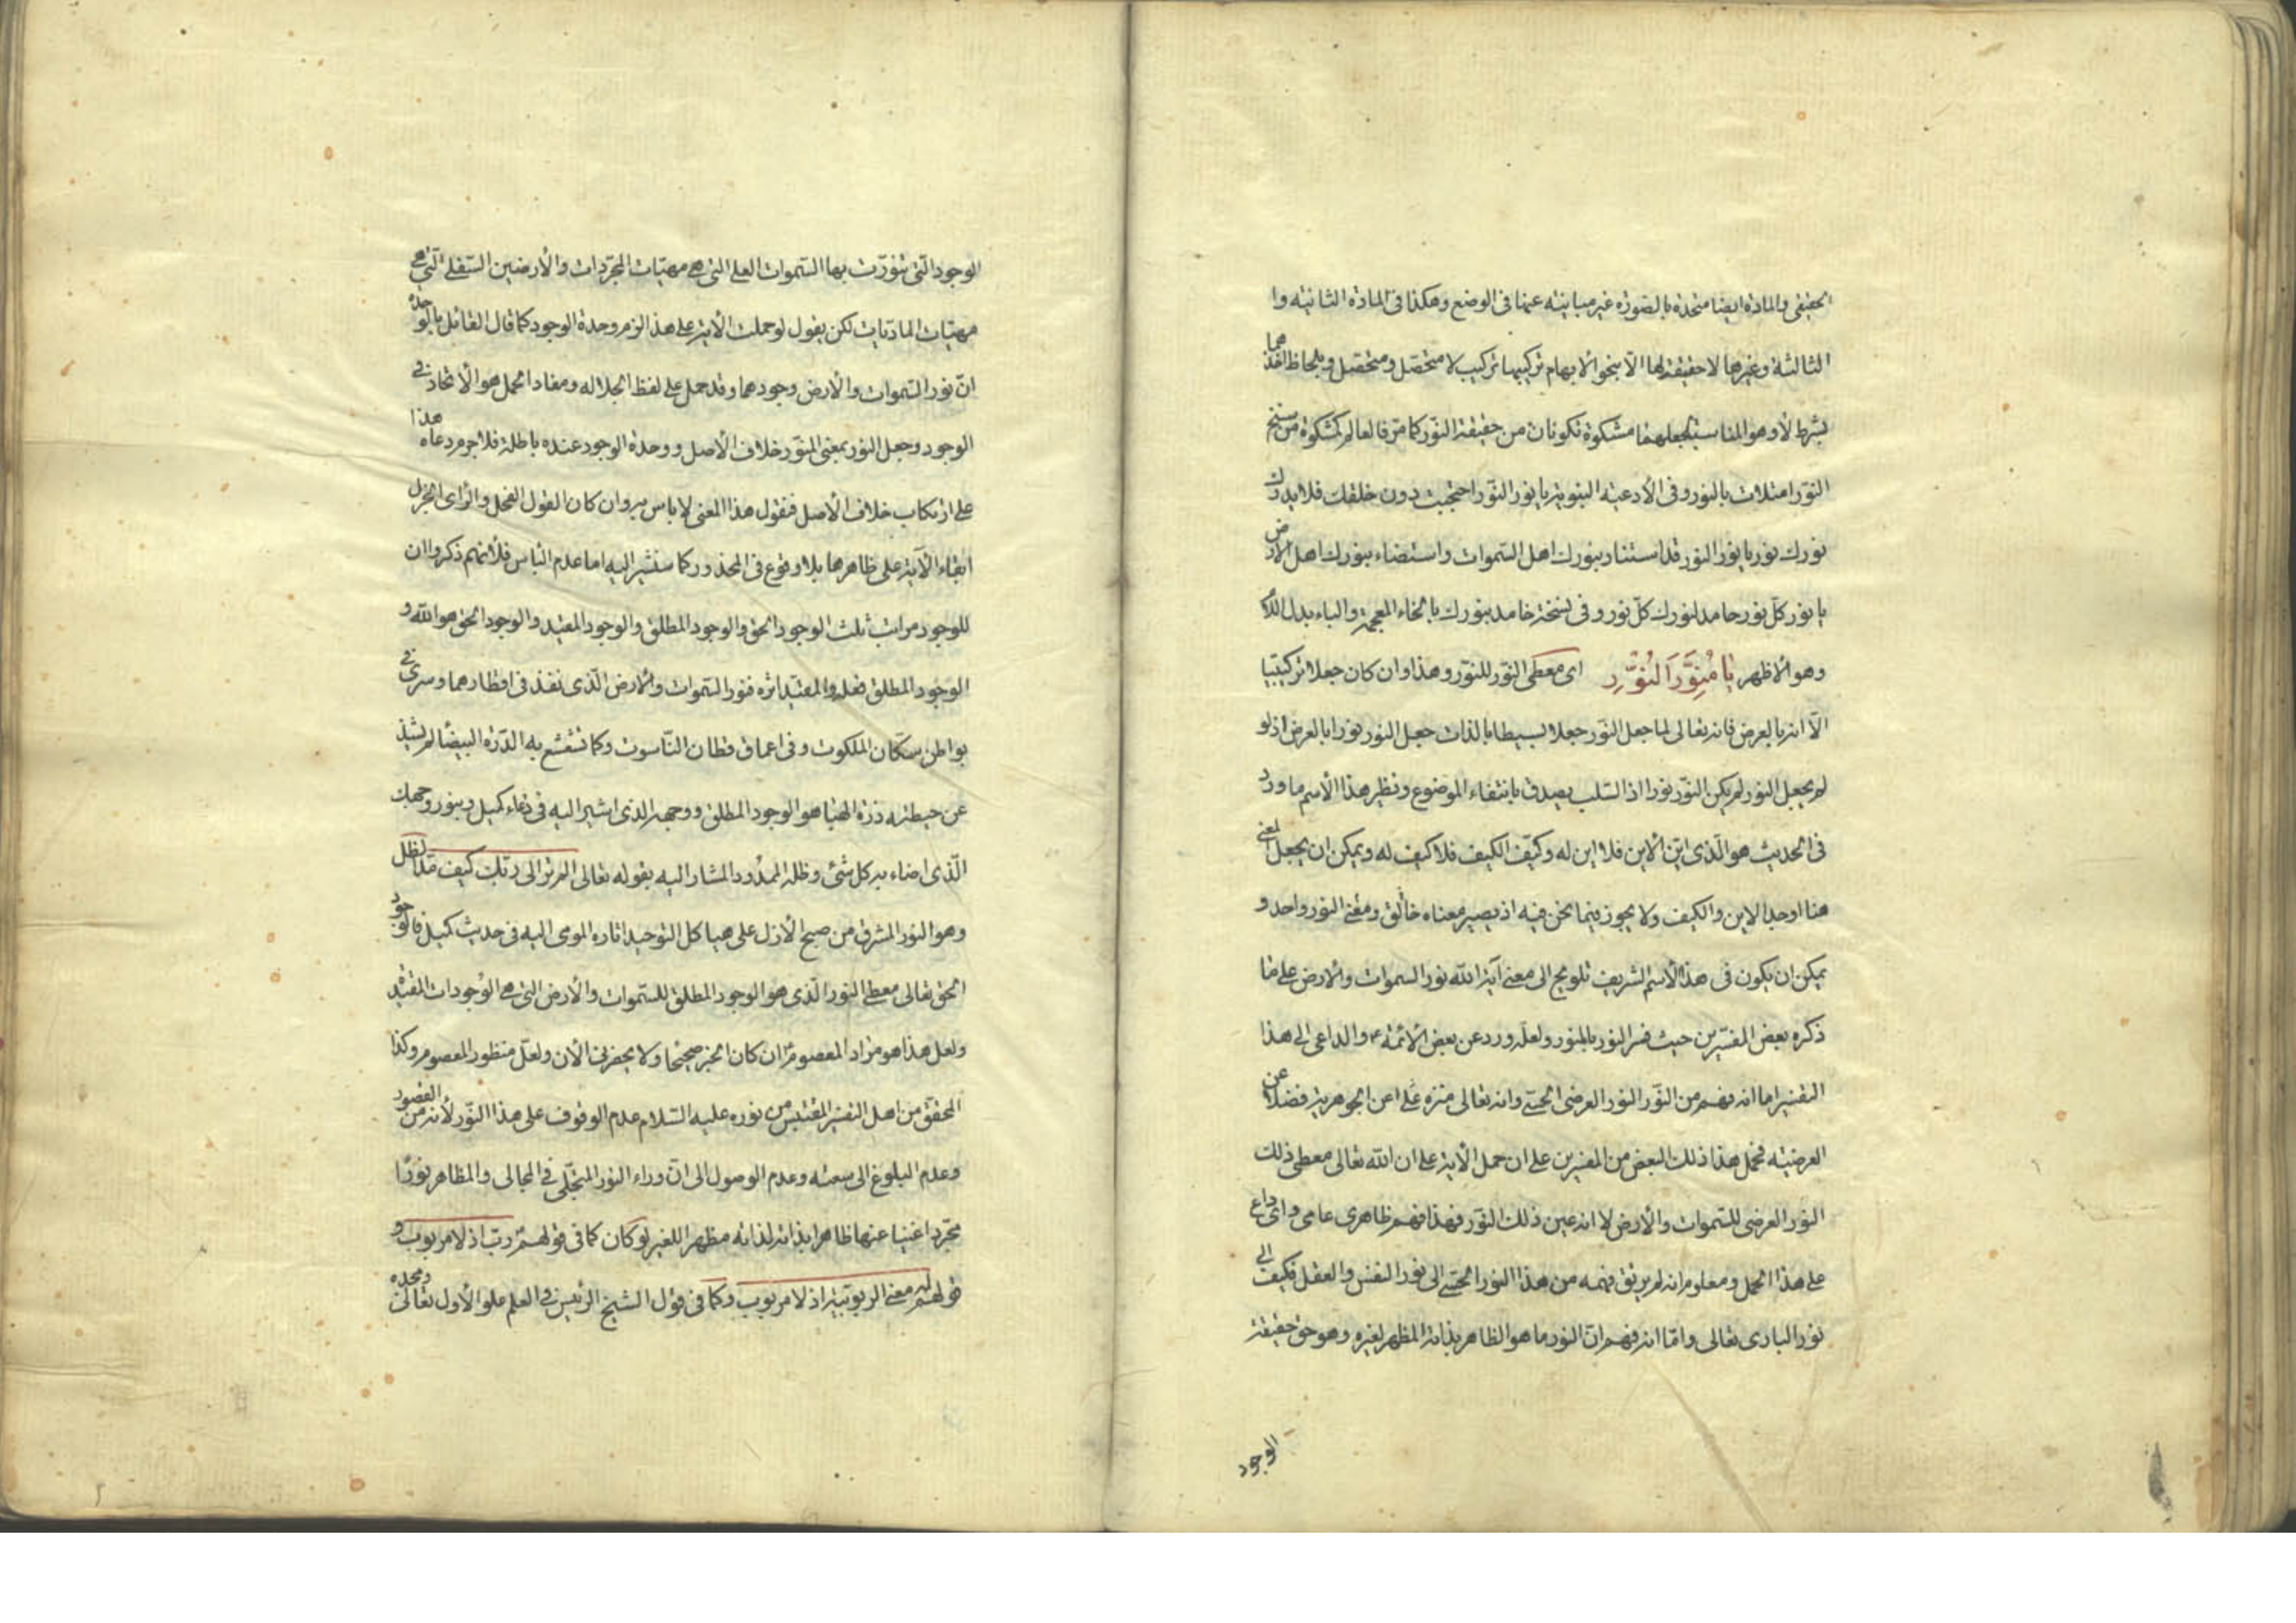 الحقيقى والمادة ايضا متحدة بالصورة غير مباينته عنها فى الوضع وهكذا فى المادة الثانيه وا
الثالثة وغيرها لا حقيقة لها الّا بنحو الابهام تركيبها تركيب لا متحصّل ومتحصّل وبلحاظ اخذهما
بشرط لا وهو المناسب لجعلهما مشكوة تكونان من حقيقة النّور كما مرّ فالعالم كمشكوة من سنخ
النّور امتلات بالنور وفى الأدعيته النبوية يا نور النّور احتجبت دون خلقك فلا يدرك
نورك نور يا نور النور قد استنار بنورك اهل السّموات واستضاء بنورك اهل الأرض
يا نور كلّ نور حامد لنورك كلّ نور وفى نسخة خامد بنورك بالخاء المعجمة والباء بدل اللام
وهو الاظهر يَا مُنَوِّرَ النُّورِ اى معطى النّور للنّور وهذا وان كان جعلا تركيبيا
الّا انه بالعرض فانه تعالى لما جعل النّور جعلا بسيطا بالذات جعل النور نورا بالعرض اذ لو
لم يجعل النور لم يكن النّور نورا اذ السّلب يصدق بانتفاء الموضوع ونظير هذا الأسم ما ورد
فى الحديث هو الّذى ايّن الأين فلا اين له وكيّف الكيف فلا كيف له ويمكن ان يجعل المعنى
هنا اوجد الاين والكيف ولا يجوز فيما نحن فيه اذ يصير معناه خالق ومعنى النور واحد و
يمكن ان يكون فى هذا الأسم الشريف تلويح الى معنى آية الله نور السموات والأرض على ما
ذكره بعض المفسّرين حيث فسر النور بالمنور ولعله ورد عن بعض الأئمّة ع والداعى الى هذا
التفسير اما انه فهم من النّور النور العرضى الحسّى وانه تعالى منزه على عن الجوهرية فضلا عن
العرضيته فحمل هذا ذلك البعض من المفسرين على ان حمل الآية على ان الله تعالى معطى ذلك
النور العرضى للسّموات والأرض لا انه عين ذلك النّور فهذا فهم ظاهرى عامى واىّ داع
على هذا الحمل ومعلوم انه لم يرتق فهمه من هذا النور الحسّى الى نور النفس والعقل فكيف الى
نور البارى تعالى وامّا انه فهم انّ النور ما هو الظاهر بذاته المظهر لغيره وهو حق حقيقة
الوجود
الوجود الّتى تنوّرت بها السّموات العلى التى هى مهيّات المجرّدات والأرضين السّفلى الّتى هى
مهيّات الماديّات لكن يقول لو حملت الآية على هذا لزم وحدة الوجود كما قال القائل بالوحدة
انّ نور السّموات والأرض وجودهما وقد حمل على لفظ الجلاله ومفاد الحمل هو الأتحاد فى
الوجود وجعل النور بمعنى المنّور خلاف الأصل ووحدة الوجود عنده باطلة فلا جرم دعاه هذا
على ارتكاب خلاف الأصل فنقول هذا المعنى لا باس به وان كان القول الفحل والرّاى الجزل
ابقاء الآية على ظاهرها بلا وقوع فى المحذور كما سنشير اليه اما عدم الباس فلأنهم ذكروا ان
للوجود مراتب ثلث الوجود الحق والوجود المطلق والوجود المقيد والوجود الحق هو الله و
الوجود المطلق فعله والمقيّد اثره فنور السّموات والأرض الّذى نفذ فى اقطارهما وسرى فى
بواطن سكّان الملكوت وفى اعماق قطان النّاسوت وكما تشعشع به الدّرة البيضا لم يشذ
عن حيطته ذرة الهبا هو الوجود المطلق ووجهه الذى اشير اليه فى دعاء كميل وبنور وجهك
الّذى اضاء به كل شئ وظله الممدود المشار اليه بقوله تعالى الم تر الى ربّك كيف مدّ الظل
وهو النور المشرق من صبح الأزل على هياكل التوحيد اثاره المومى اليه فى حديث كميل فالوجود
الحق تعالى معطى النور الّذى هو الوجود المطلق للسّموات والأرض التى هى الوجودات المقيّدة
ولعل هذا هو مراد المعصوم ع ان كان الخبر صحيحا ولا يحضرنى الأن ولعلّ منظور المعصوم وكذا
المحقق من اهل التفسير المقتبس من نوره عليه السّلام عدم الوقوف على هذا النّور لأنه من القصور
وعدم البلوغ الى سمته وعدم الوصول الى انّ وراء النور المتجلّى فى المجالى والمظاهر نورًا
مجرّدا غنيا عنها ظاهرا بذاته لذاته مظهرا للغير لو كان كما فى قولهم ربّ اذ لا مربوب و
قولهم له معنى الربوبيّة اذ لا مربوب وكما فى قول الشيخ الرئيس فى العلم علو الأول تعالى ومجده